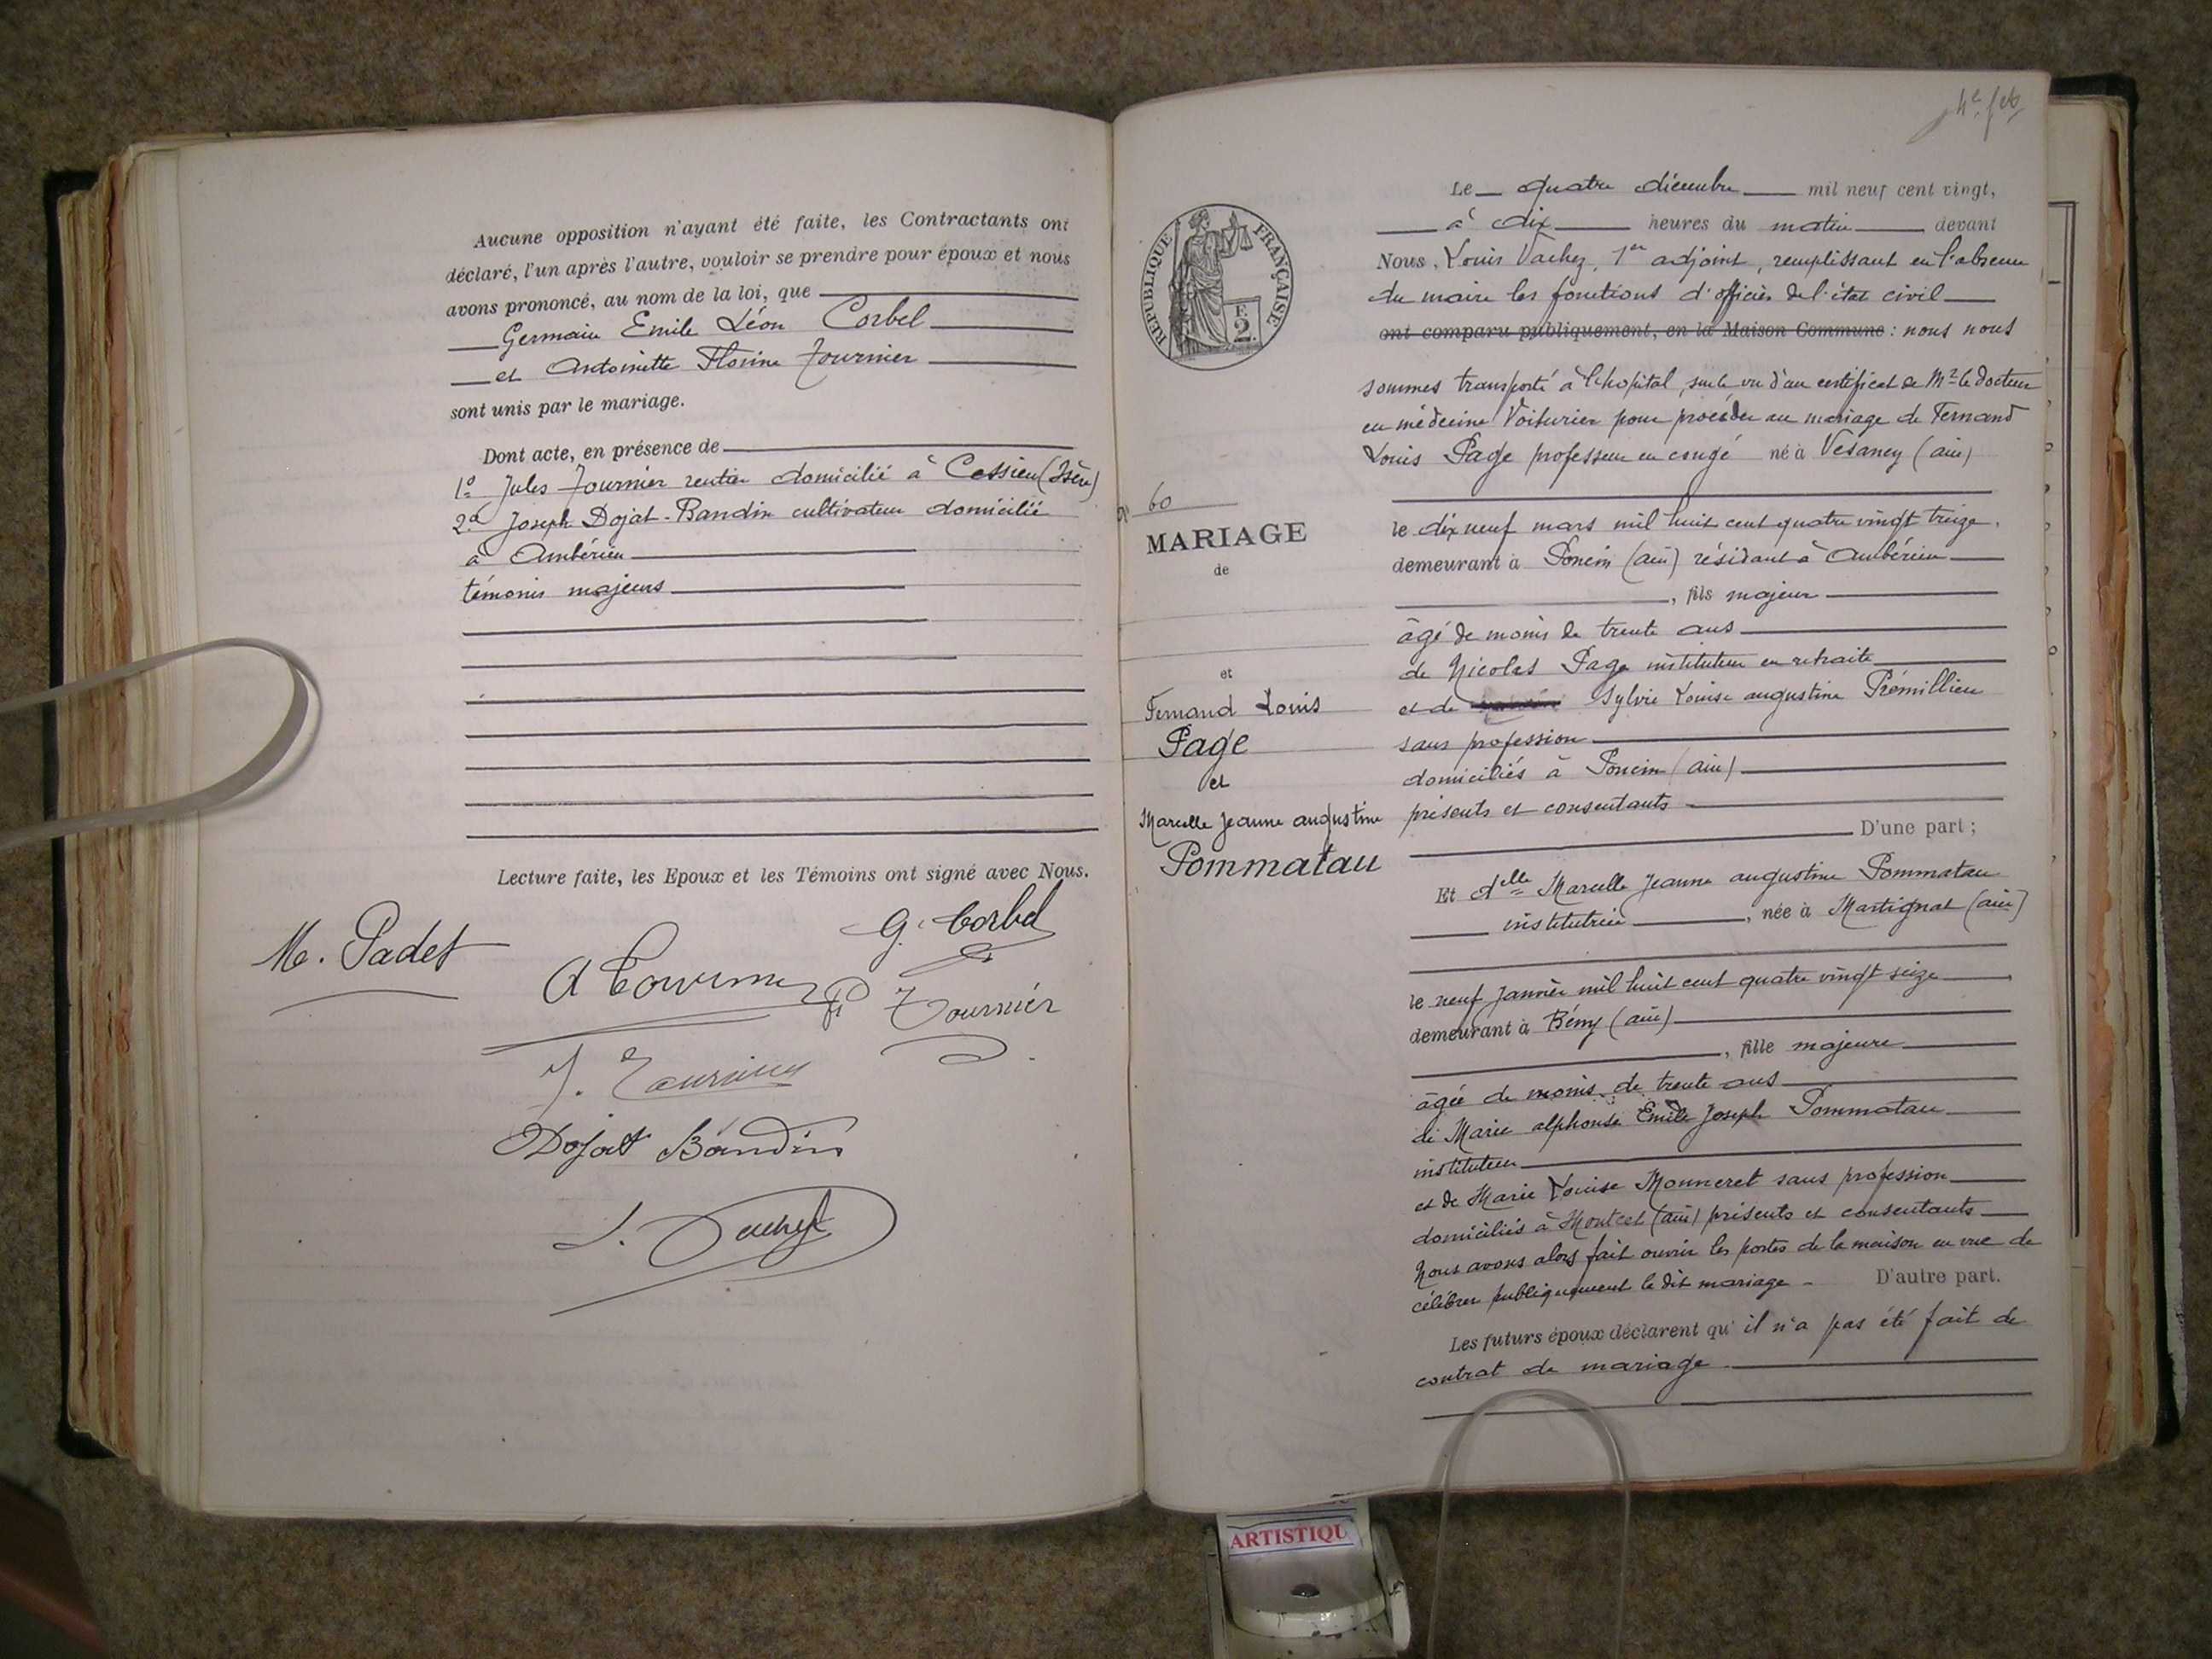 Aucune opposition n'ayant été faite, les Contractants ont
déclaré, l'un après l'autre, vouloir se prendre pour époux et nous
avons prononcé, au nom de la loi, que
Germain Emile Léon Corbel
et Antoinette Florine Tournier
sont unis par le mariage.
Dont acte, en présence de
1º Jules Tournier rentier domicilié à Cessieu (Isère)
2º Joseph Dojat-Bandin cultivateur domicilié
à Ambérieu
témoins majeurs
Lecture faite, les Epoux et les Témoins ont signé avec Nous.
G. Corbel
M. Padet
A Tournier
Tournier
J. Tournier
Dojat Bandin
L. Vachez
4e fet
REPUBLIQUE FRANÇAISE
F.
2.
Nº 60
MARIAGE
de
et
Fernand Louis
Page
et
Marcelle Jeanne augustine
Pommatau
Le quatre décembre mil neuf cent vingt,
à dix heures du matin devant
Nous, Louis Vachez, 1er adjoint, remplissant en l'absence
du maire les fonctions d'officier de l'état civil
ont comparu publiquement, en la Maison Commune : nous nous
sommes transporté à l'hopital, sur le vu d'un certificat de Mr le docteur
en médecine Voiturier pour procéder au mariage de Fernand
Louis Page professeur en congé né à Vésancy (ain)
le dix neuf mars mil huit cent quatre vingt treize,
demeurant à Poncin (ain) résidant à Ambérieu
, fils majeur
âgé de moins de trente ans
de Nicolas Page instituteur en retraite
et de Sylvie Louise augustine Prémillieu
sans profession
domiciliés à Poncin (ain)
présents et consentants
D'une part ;
Et delle Marcelle Jeanne augustine Pommatau
institutrice, née à Martignat (ain)
le neuf janvier mil huit cent quatre vingt seize
demeurant à Bény (ain)
, fille majeure
âgée de moins de trente ans
de Marie alphonse Emile Joseph Pommatau
instituteur
et de Marie Louise Monneret sans profession
domiciliés à Montcet (ain) présents et consentants
Nous avons alors fait ouvrir les portes de la maison en vue de
célébrer publiquement le dit mariage - D'autre part.
Les futurs époux déclarent qu'il n'a pas été fait de
contrat de mariage
ARTISTIQU